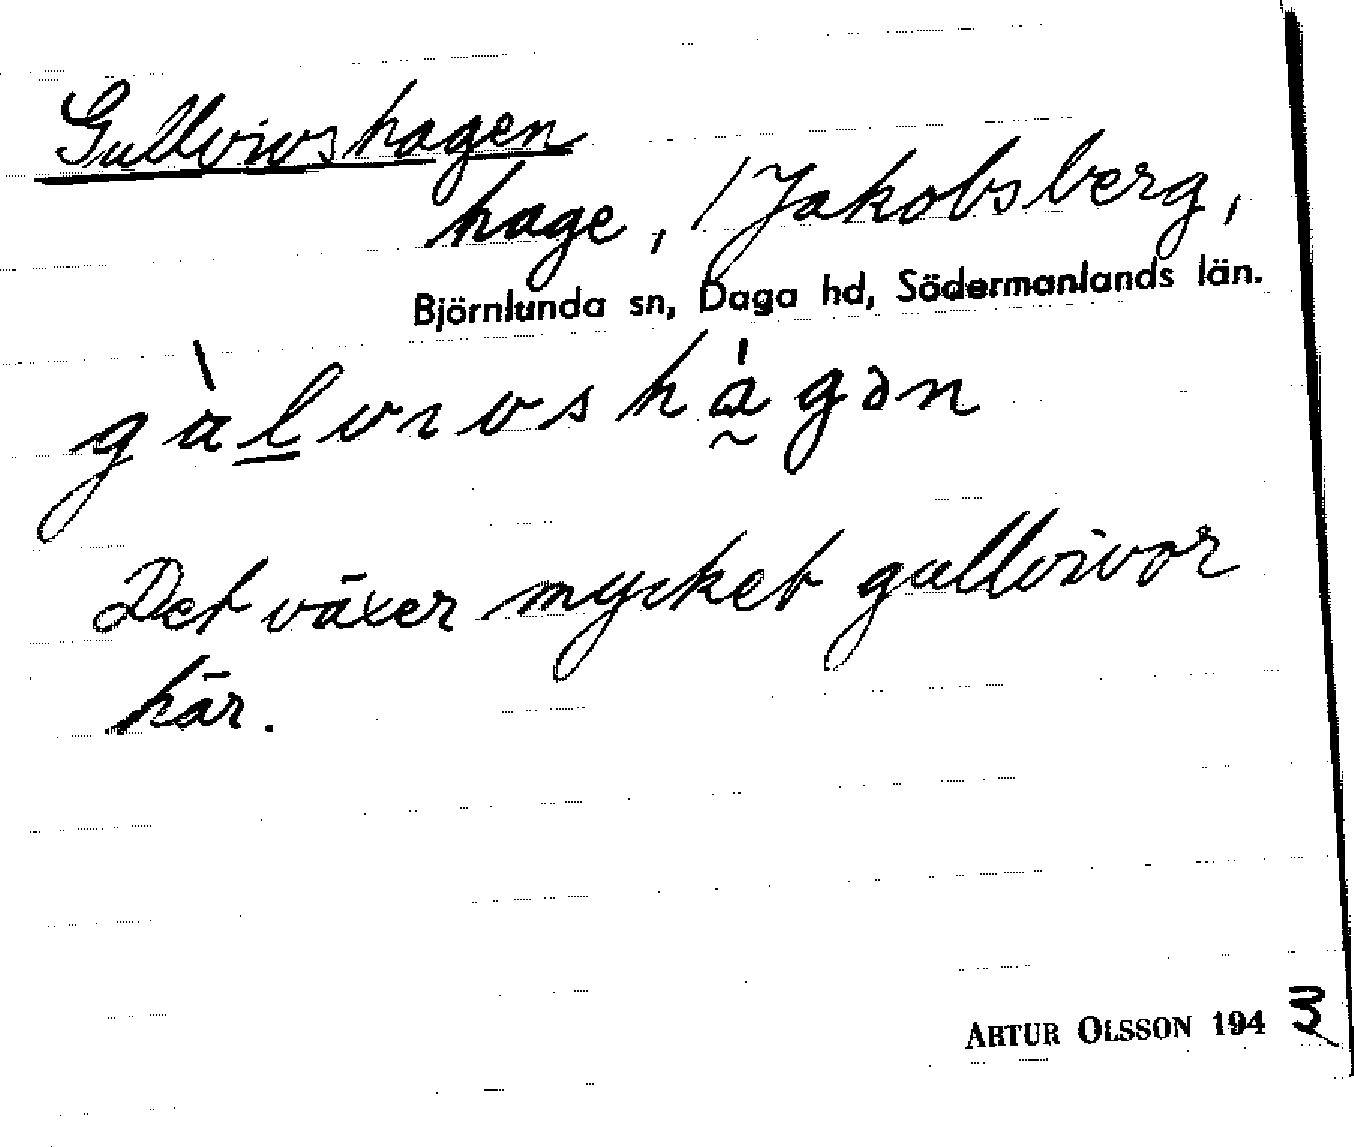 Gullvivshagen
hage, / Jakobsberg,
Björnlunda sn, Daga hd, Södermanlands län.
gàl̲vıvshá̰gən
Det växer mycket gullvivor
här.
ARTUR OLSSON 1943